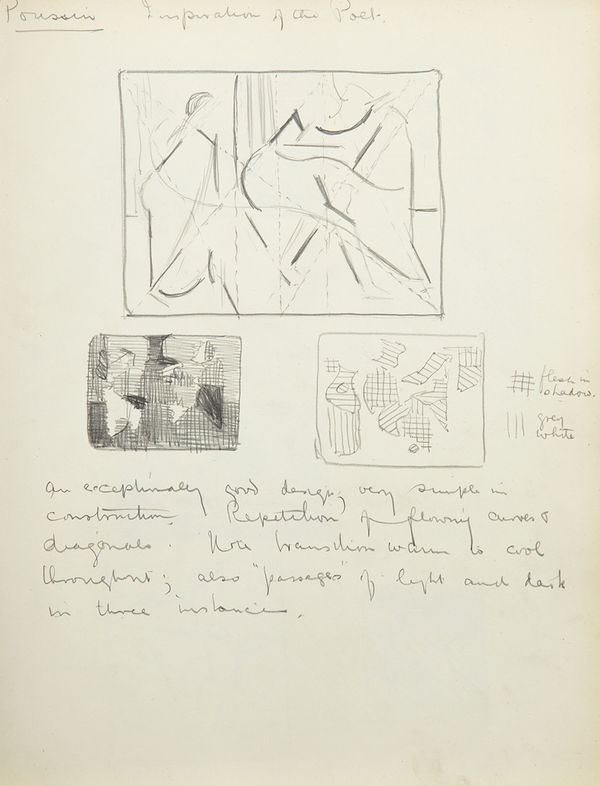 Poussin Inspiration of the Poet.
flesh in
shadow.
grey
white
An exceptionally good design, very simple in
construction. Repetition of flowing curves &
diagonals. Note transition warm to cool
throughout; also "passages" of light and dark
in three instances.